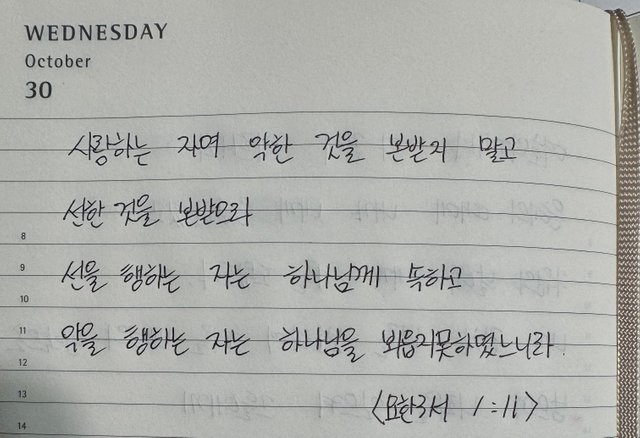 WEDNESDAY
October
30
사랑하는 자여 악한 것을 본받지 말고
선한 것을 본받으라
8
9 선을 행하는 자는 하나님께 속하고
10
11 악을 행하는 자는 하나님을 뵈옵지못하였느니라.
12
13 <요한3서 1:11>
14